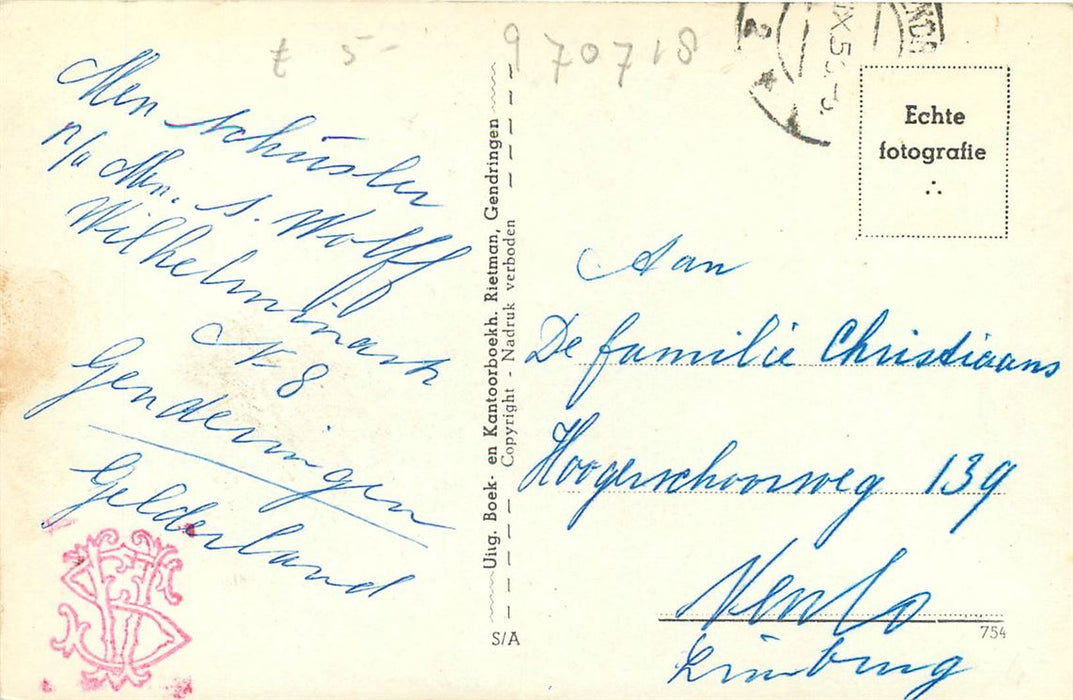 t 5-
970718
Men schüsler
p/a Men. S. Wolff
Wilhelminastr
No 8
Genderingen
Gelderland
Uitg. Boek- en Kantoorboekh. Rietman, Gendringen
Copyright - Nadruk verboden
S/A
Echte
fotografie
Aan
De familie Christiaans
Hoogerschoorweg 139
Venlo
754
Limburg